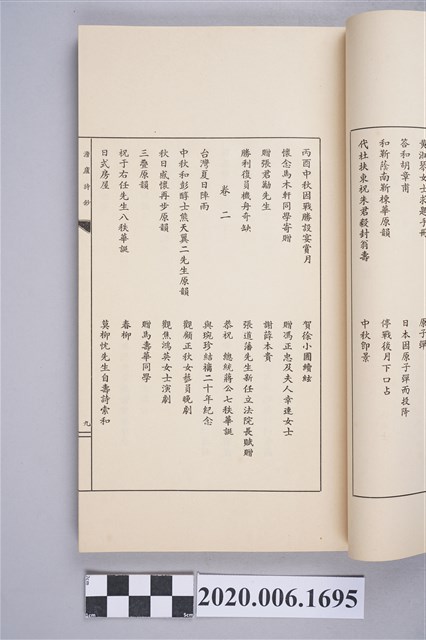 黃淑碧女士求題手冊
答和胡韋甫
和靳蔭南新棟華原韻
代杜扶東祝朱君毅封翁壽
原子彈
日本因原子彈而投降
停戰後月下口占
中秋卽景
丙酉中秋因戰勝設宴賞月
懷念馬木軒同學寄贈
贈張君勱先生
勝利復員機舟奇缺
卷二
台灣夏日陣雨
中秋和彭醇士熊天翼二先生原韻
秋日感懷再步原韻
三疊原韻
祝于右任先生八秩華誕
日式房屋
賀徐小圃續絃
贈馮正忠及夫人幸連女士
謝薛本貴
張道藩先生新任立法院長賦贈
恭祝 總統蔣公七秩華誕
與琬珍結褵二十年紀念
觀顧正秋女藝員晚劇
觀焦鴻英女士演劇
贈馬壽華同學
春柳
莫柳忱先生自壽詩索和
澹廬詩鈔
九
1cm
5cm
2020.006.1695